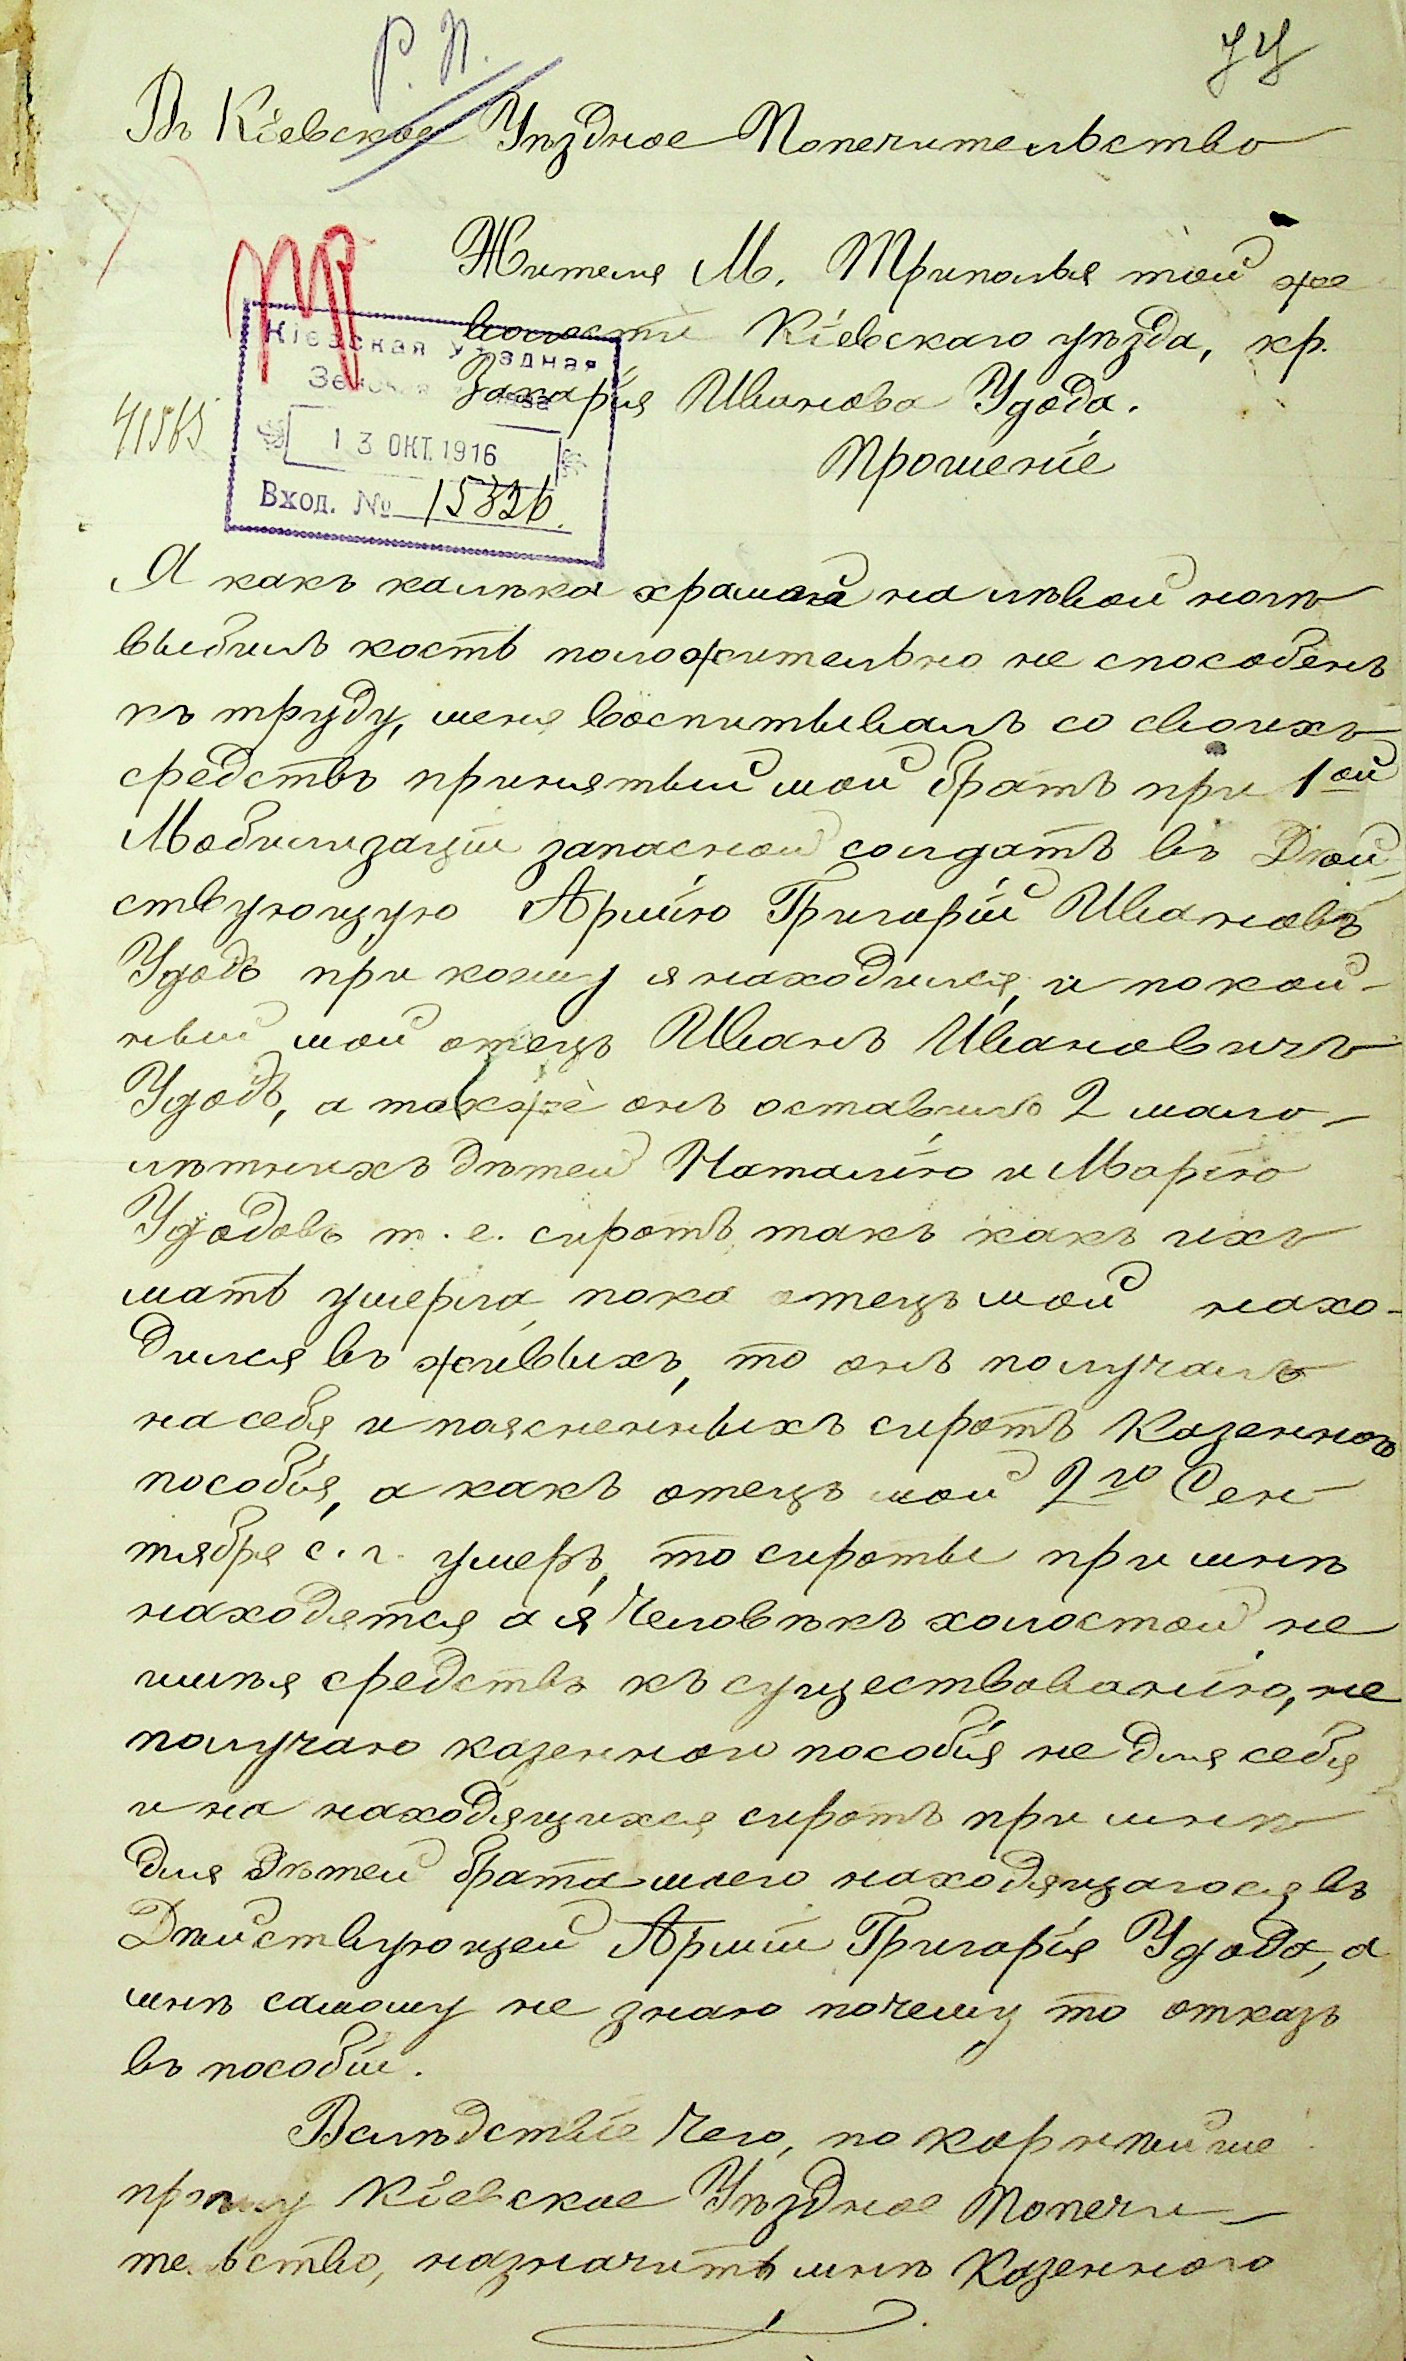 Р. П.
Въ Кіевское Уѣздное Попечительство
Жителя М. Триполья той же
волости Кіевскаго уѣзда, кр.
Захарія Иванова Удода.
Прошеніе
Кіевская Уѣздная
13 ОКТ. 1916
Вход. № 15326.
41565
Я какъ калѣка храмой на лѣвой ногѣ
выбилъ кость положительно не способенъ
къ труду, меня воспитывалъ со своихъ
средствъ принятый мой братъ при 1ой
Мобилизаціи запасной солдатъ въ Дѣй-
ствующую Армію Григорій Ивановъ
Удодъ при кому я находился, и покой-
ный мой отецъ Иванъ Ивановичъ
Удодъ, а также онъ оставилъ 2 мало-
лѣтнихъ дѣтей Наталію и Марію
Удодовъ т. е. сиротъ, такъ какъ ихъ
мать умерла, пока отецъ мой нахо-
дился въ живыхъ, то онъ получалъ
на себя и поясненныхъ сиротъ Казенного
пособія, а какъ отецъ мой 2го Сен-
тября с. г. умеръ, то сироты при мнѣ
находятся а я Человѣкъ холостой не
имѣя средствъ къ существованію, не
получаю казенного пособія не для себя
и на находящихся сиротъ при мнѣ
для дѣтей брата моего находящагося въ
Дѣйствующей Арміи Григорія Удода, а
мнѣ самому не знаю почему то отказъ
въ пособіи.
Вслѣдствіе Чего, покорнѣйше
прошу Кіевское Уѣздное Попечи-
тельство, назначить мнѣ Казенного